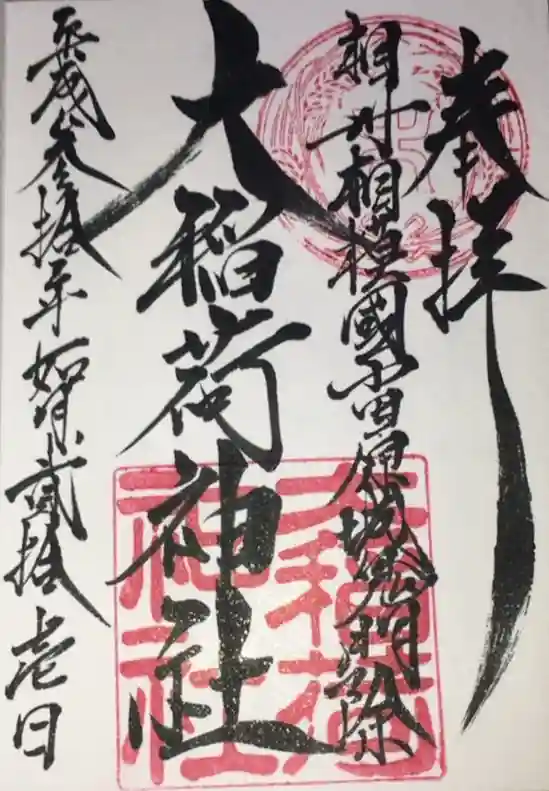 奉拝
相州相模國小田原城鬼門除
大稲荷神社
平成参拾年如月弐拾壱日
大稲荷
神社